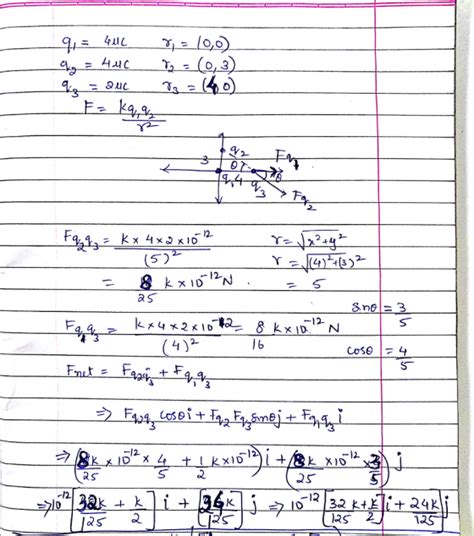 q₁ = 4μC r₁ = (0,0)
q₂ = 4μC r₂ = (0, 3)
q₃ = 2μC r₃ = (4,0)
F = kq₁q₂ / r²
q₂ Fq₁
3 θ θ
q₁ 4 q₃ Fq₂
Fq₂q₃ = k × 4 × 2 × 10⁻¹² / (5)² r = √x² + y²
r = √(4)² + (3)²
= 8/25 k × 10⁻¹² N = 5
sinθ = 3/5
Fq₁q₃ = k × 4 × 2 × 10⁻¹² / (4)² = 8/16 k × 10⁻¹² N
cosθ = 4/5
Fnet = Fq₂q₃ + Fq₁q₃
⇒ Fq₂q₃ cosθi + Fq₂Fq₃ sinθj + Fq₁q₃ i
⇒ (8k/25 × 10⁻¹² × 4/5 + 1/2 k × 10⁻¹²) i + (8k/25 × 10⁻¹² × 3/5) j
⇒ 10⁻¹² [32k/125 + k/2] i + [24k/125] j ⇒ 10⁻¹² [32k/125 + k/2] i + 24k/125 j